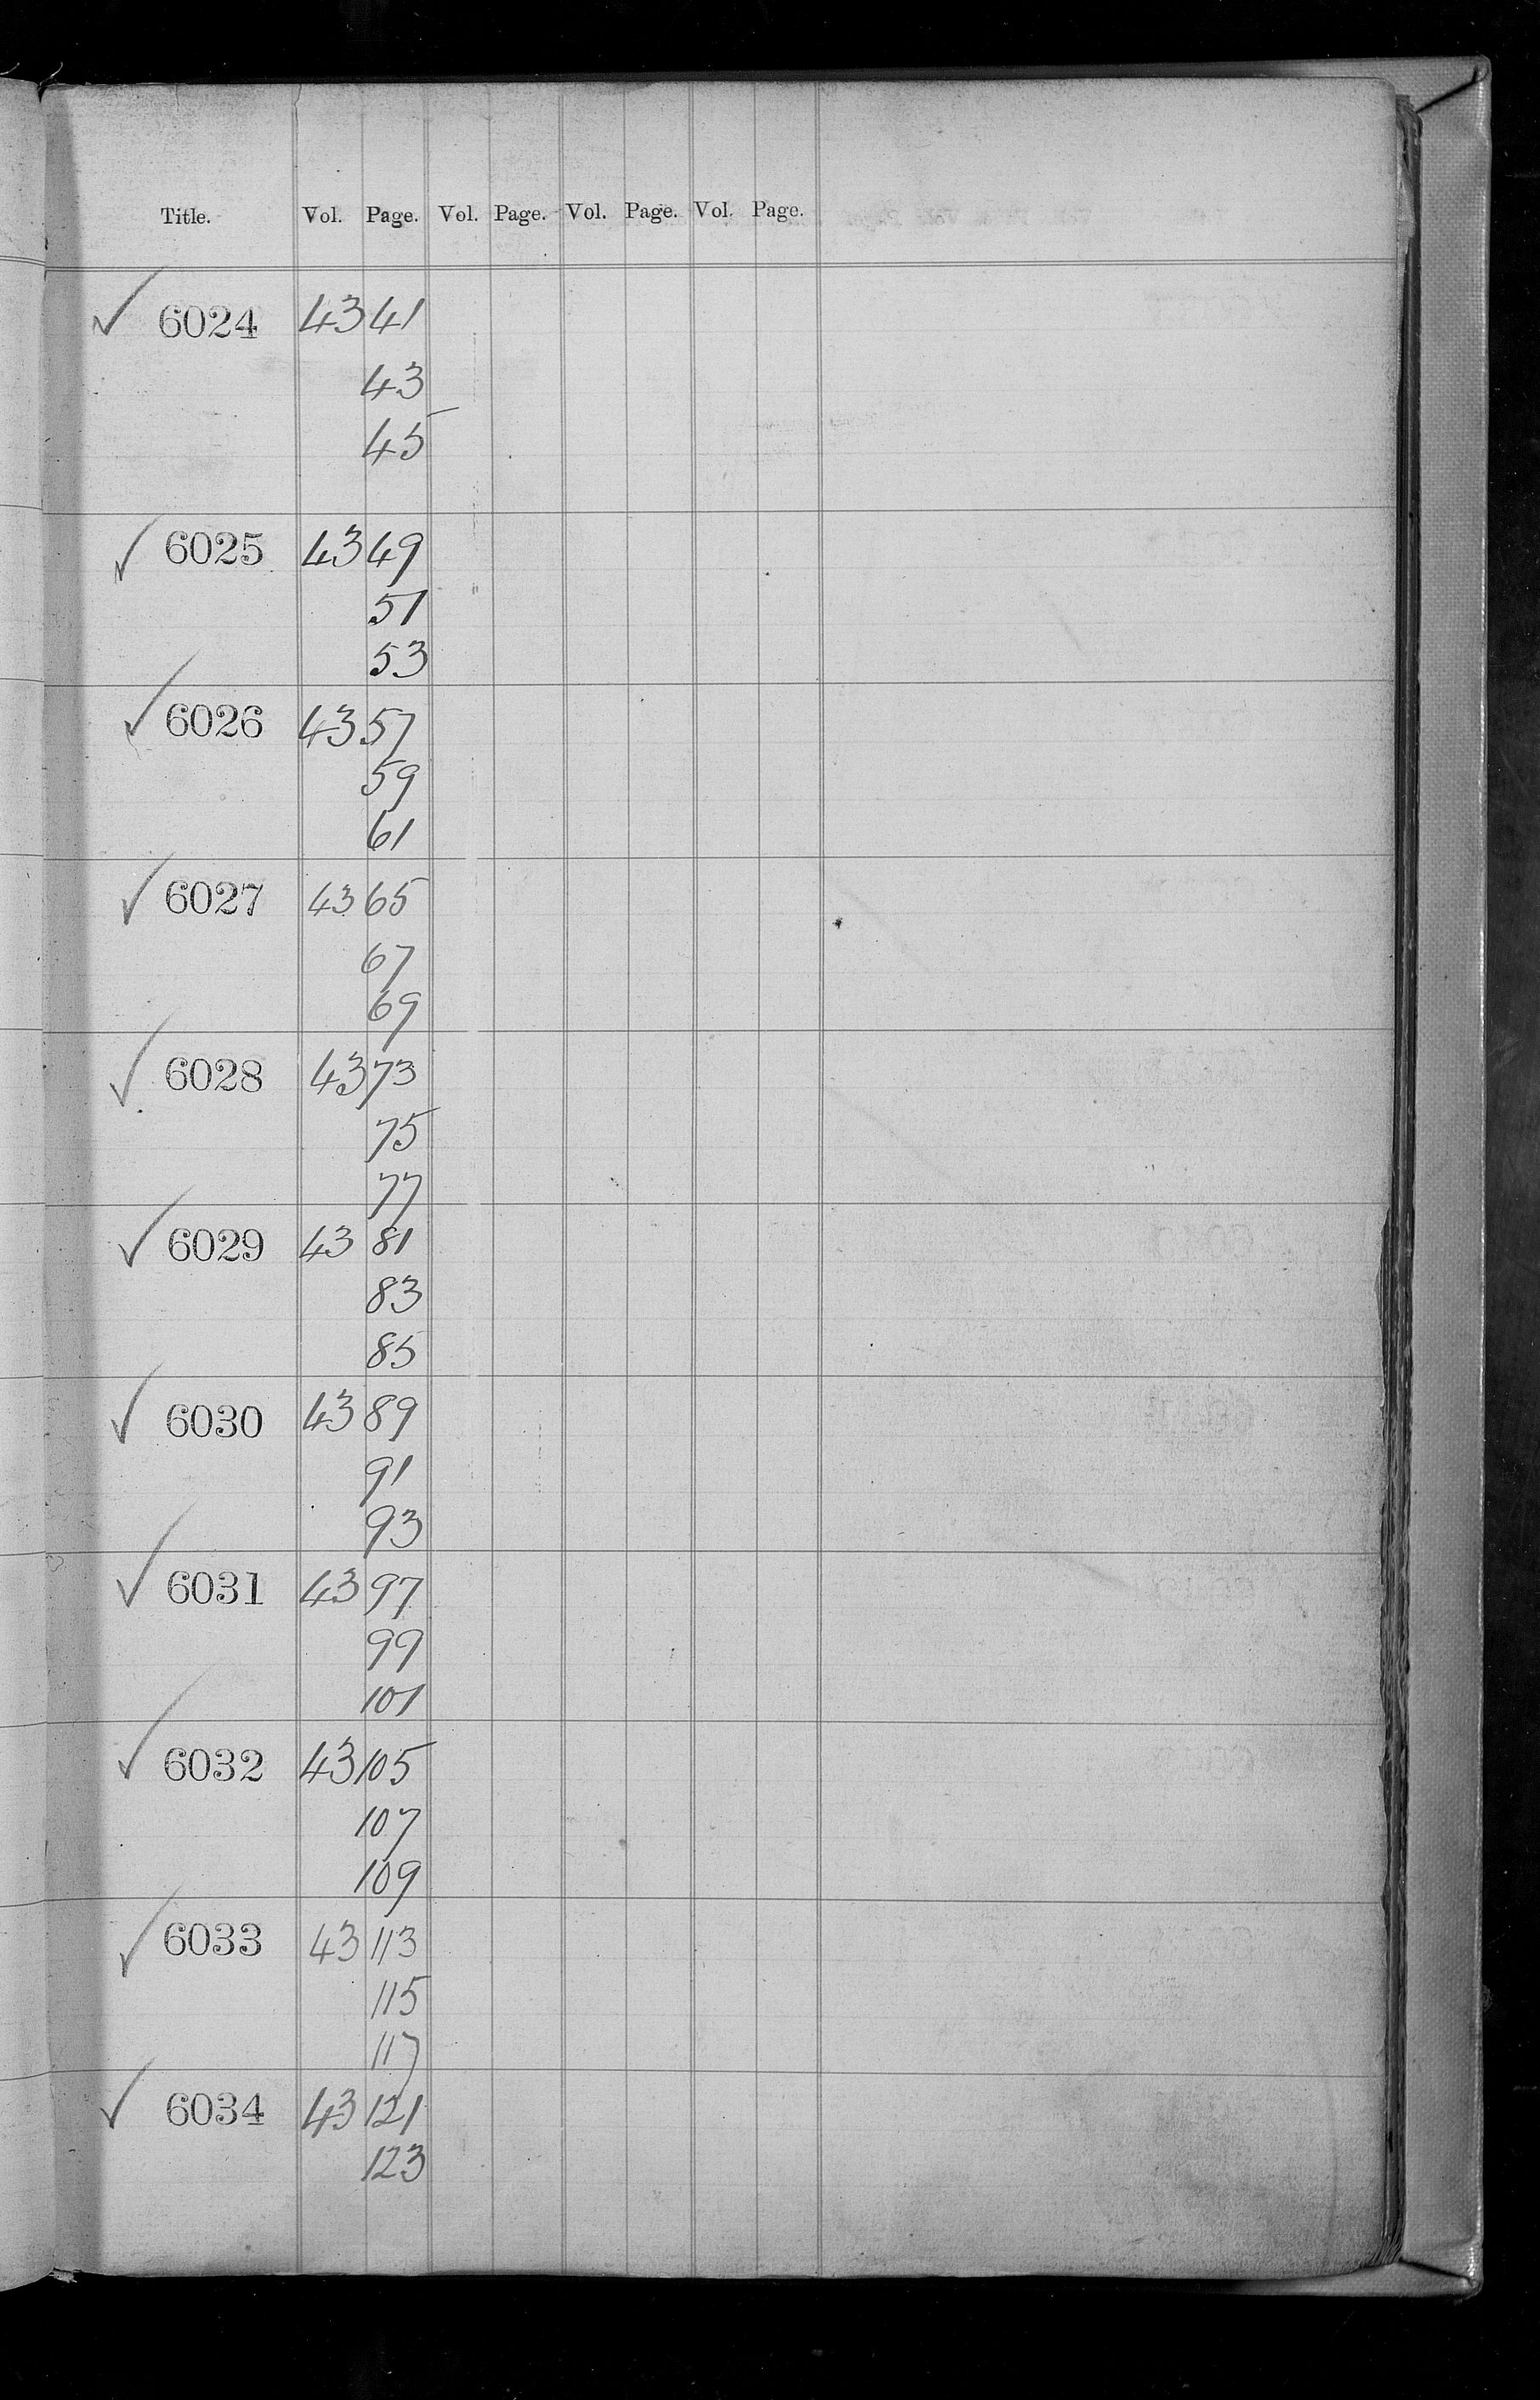 Title. Vol. Page. Vol. Page. Vol. Page. Vol. Page.
✓ 6024 43 41
43
45
✓ 6025 43 49
51
53
✓ 6026 43 57
59
61
✓ 6027 43 65
67
69
✓ 6028 43 73
75
77
✓ 6029 43 81
83
85
✓ 6030 43 89
91
93
✓ 6031 43 97
99
101
✓ 6032 43 105
107
109
✓ 6033 43 113
115
117
✓ 6034 43 121
123